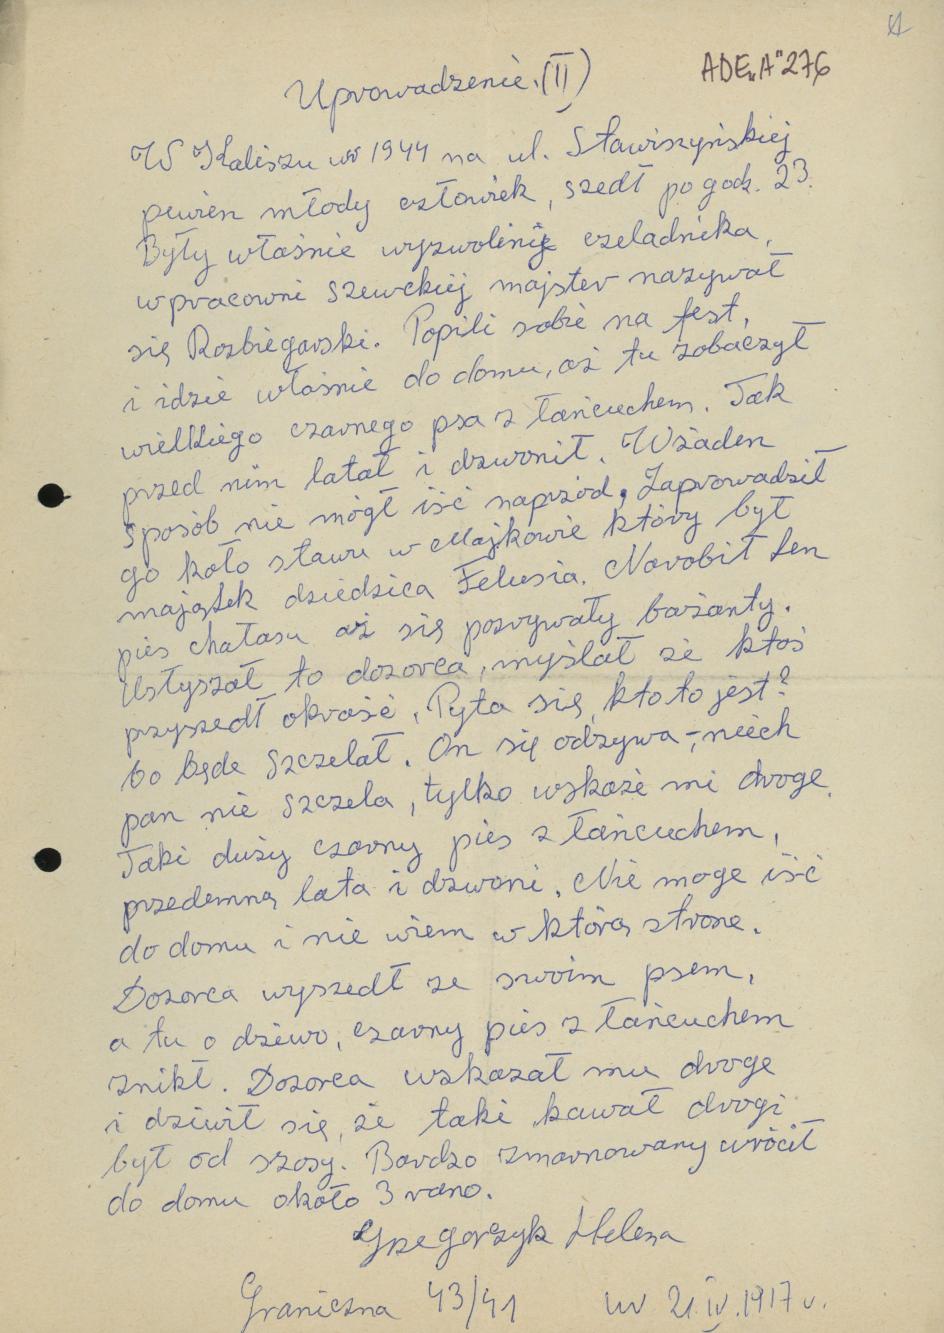 ADE„A"276
Uprowadzenie.(II)
W Kaliszu w 1944 na ul. Stawiszyńskiej
pewien młody człowiek, szedł po godz. 23.
Były właśnie wyzwoliny czeladnika,
w pracowni szewckiej majster nazywał
się Rozbiegarski. Popili sobie na fest,
i idzie właśnie do domu, aż tu zobaczył
wielkiego czarnego psa z łańcuchem. Tak
przed nim latał i dzwonił. Wżaden
sposób nie mógł iść naprzód. Zaprowadził
go koło stawu w Majkowie który był
majątek dziedzica Felusia. Narobił ten
pies chałasu aż się pozrywały bażanty.
Usłyszał to dozorca, myślał że ktoś
przyszedł okraść. Pyta się, kto to jest?
bo będe szczelał. On się odzywa, - niech
pan nie szczela, tylko wskaże mi droge.
Taki duży czarny pies z łańcuchem,
przedemną lata i dzwoni. Nie moge iść
do domu i nie wiem w którą strone.
Dozorca wyszedł ze swoim psem,
a tu o dziwo, czarny pies z łańcuchem
znikł. Dozorca wskazał mu droge
i dziwił się, że taki kawał drogi
był od szosy. Bardzo zmarnowany wrócił
do domu około 3 rano.
Grzegorzyk Helena
Graniczna 43/41 ur 21.IV.1917 r.